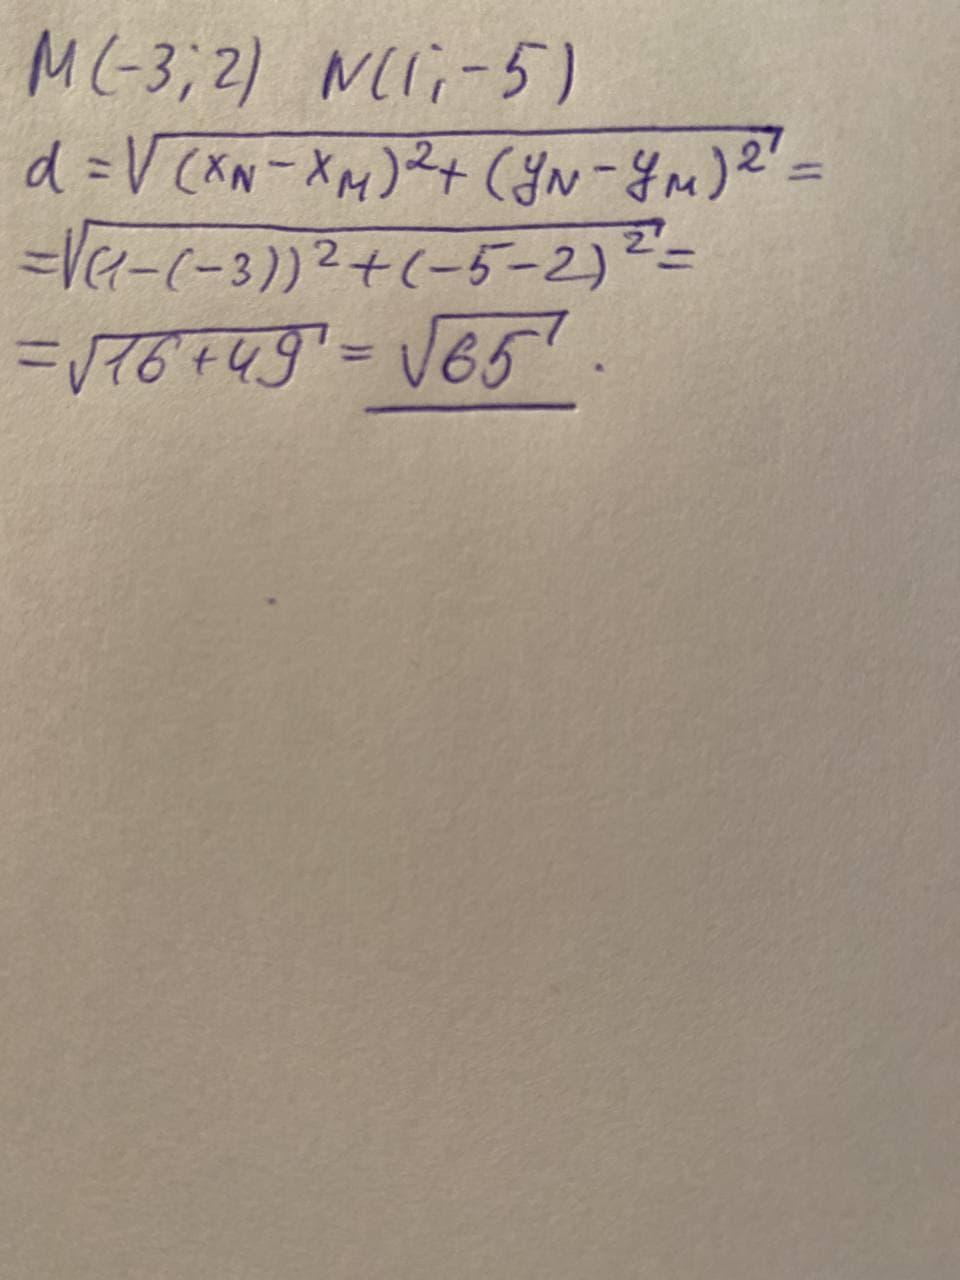 M(-3; 2) N(1; -5)
d = √((x_N - x_M)² + (y_N - y_M)²) =
= √((1-(-3))² + (-5-2)²) =
= √(16+49) = √65 .